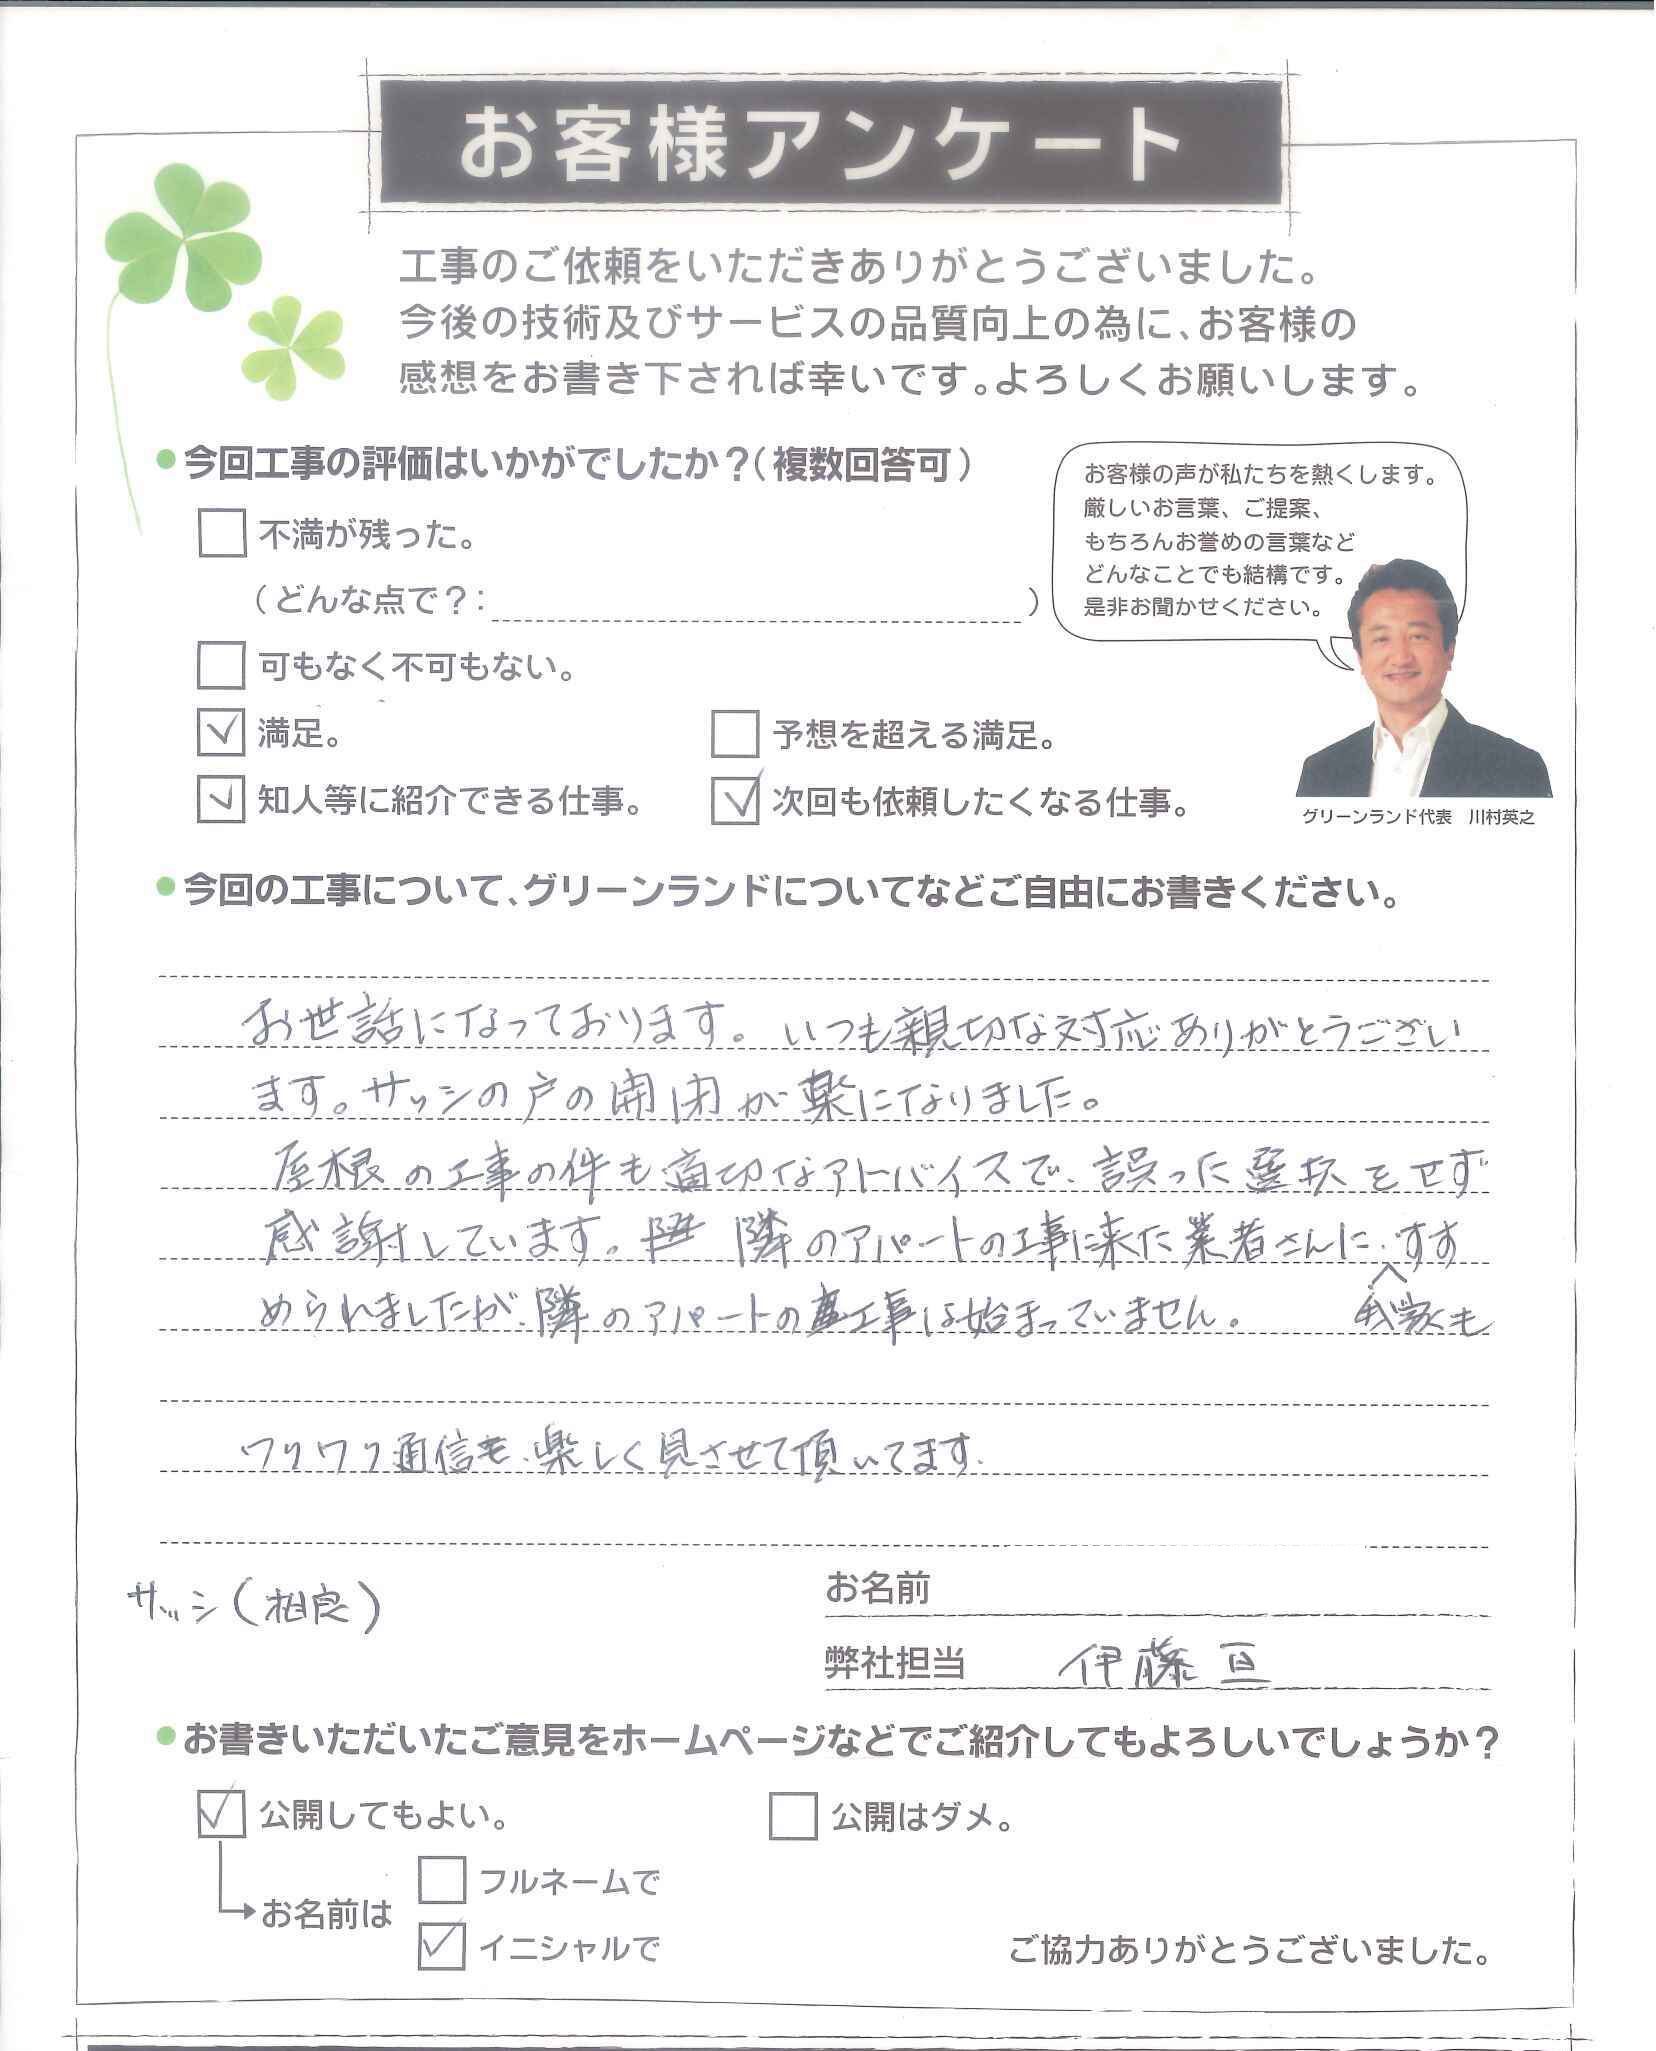 お客様アンケート
工事のご依頼をいただきありがとうございました。
今後の技術及びサービスの品質向上の為に、お客様の
感想をお書き下されば幸いです。よろしくお願いします。
今回工事の評価はいかがでしたか？（複数回答可）
不満が残った。
（どんな点で？： ）
可もなく不可もない。
満足。
予想を超える満足。
知人等に紹介できる仕事。
次回も依頼したくなる仕事。
お客様の声が私たちを熱くします。
厳しいお言葉、ご提案、
もちろんお誉めの言葉など
どんなことでも結構です。
是非お聞かせください。
グリーンランド代表 川村英之
今回の工事について、グリーンランドについてなどご自由にお書きください。
お世話になっております。いつも親切な対応ありがとうござい
ます。サッシの戸の開閉が楽になりました。
屋根の工事の件も適切なアドバイスで、誤った選択をせず
感謝しています。隣のアパートの工事に来た業者さんに、すす
められましたが、隣のアパートの工事は始まっていません。 我家も
ワリワリ通信も、楽しく見させて頂いてます。
サッシ（相良）
お名前
弊社担当 伊藤亘
お書きいただいたご意見をホームページなどでご紹介してもよろしいでしょうか？
公開してもよい。
公開はダメ。
お名前は
フルネームで
イニシャルで
ご協力ありがとうございました。